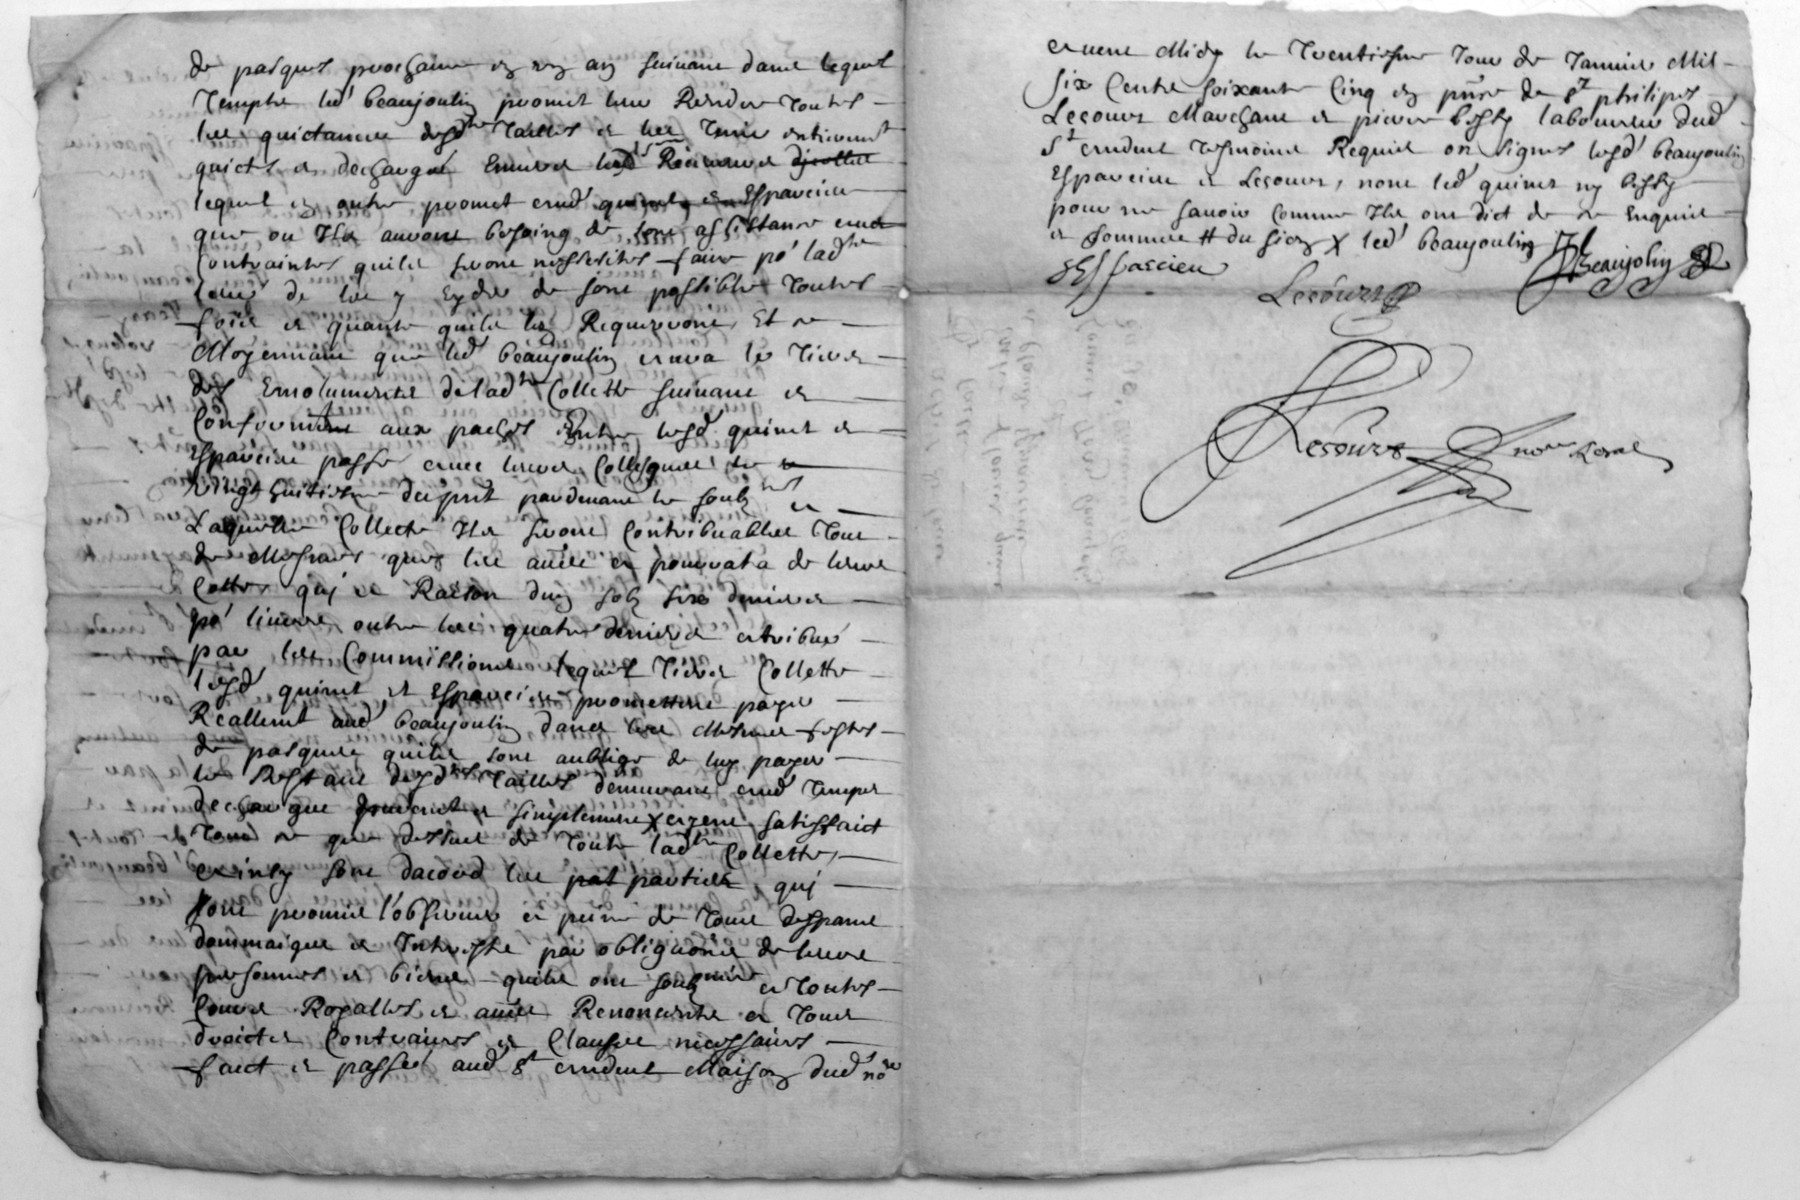 de pasques prochaine en ung an suivant dans lequel
temps led' beaujoulin promet leur Rendre toutes
les quictances desd tes tailles et les tenir entierement
quictes et descharges envers les Receveurs
lequel en outre promet aud quinet et Esparcieu
que ou Ils auront besoing de son assistance aux
Contraintes quils seront nessesites faire po' lad te
levee de les y Eyder de son possible toutes
fois et quante quils len Requerront, Et ce
Moyennant que led' beaujoulin aura le tiers
des Emoluments delad te Collette suivant et
Conformement aux paches Entre lesd' quinet et
Esparcieu passe avec leurs Collesgues le
vingt huitiesme du prnt pardevant le soubz ne et
Laquelle Collecte Ils seront Contribuables tous
de Mesmes que les aues et pourrata de leurs
Cottes quj ce Raison dung solz six deniers
po' livre, outre les quatre deniers atribues
par les Commissions lequel tiers Collette
lesd' quinet et Esparcieu promettent payer
Reallemt aud' beaujoulin dans les Mesmes festes
de pasques quils sont aublige de luy payer
le Restant desd tes tailles demeurant aud' temps
descharges purement et simplement X ayant satisfaict
tout ce que dessus de toute lad te Collette,
Et insy sont dacord les parties, quj
sont promis l'observer a peine de tous despans
dommaiges et Interestz par obligaons de leurs
personnes et biens quils ont soubzmis a toutes
Cours Royalles et aues Renoncants a tous
droictz Contraires et Clauses necessaires
faict et passe aud' St andeul Maison dud' no re
avant Midy le trentiesme Jour de Janvier Mil
six Cents soixante Cinq en pnce de Sr philipes
Lecourt Marchant et pierre bessy laboureur dud
St andeul tesmoins Requis on signes lesd' beaujoulin
Esparcieu et Lecourt, non led' quinet ny bessy
pour ne scavoir Comme Ils ont dict de ce Enquis
et Sommes # du sien X led' beaujoulin
Esparcieu
Beaujolin
Lecourt
Lecourt no re Royal